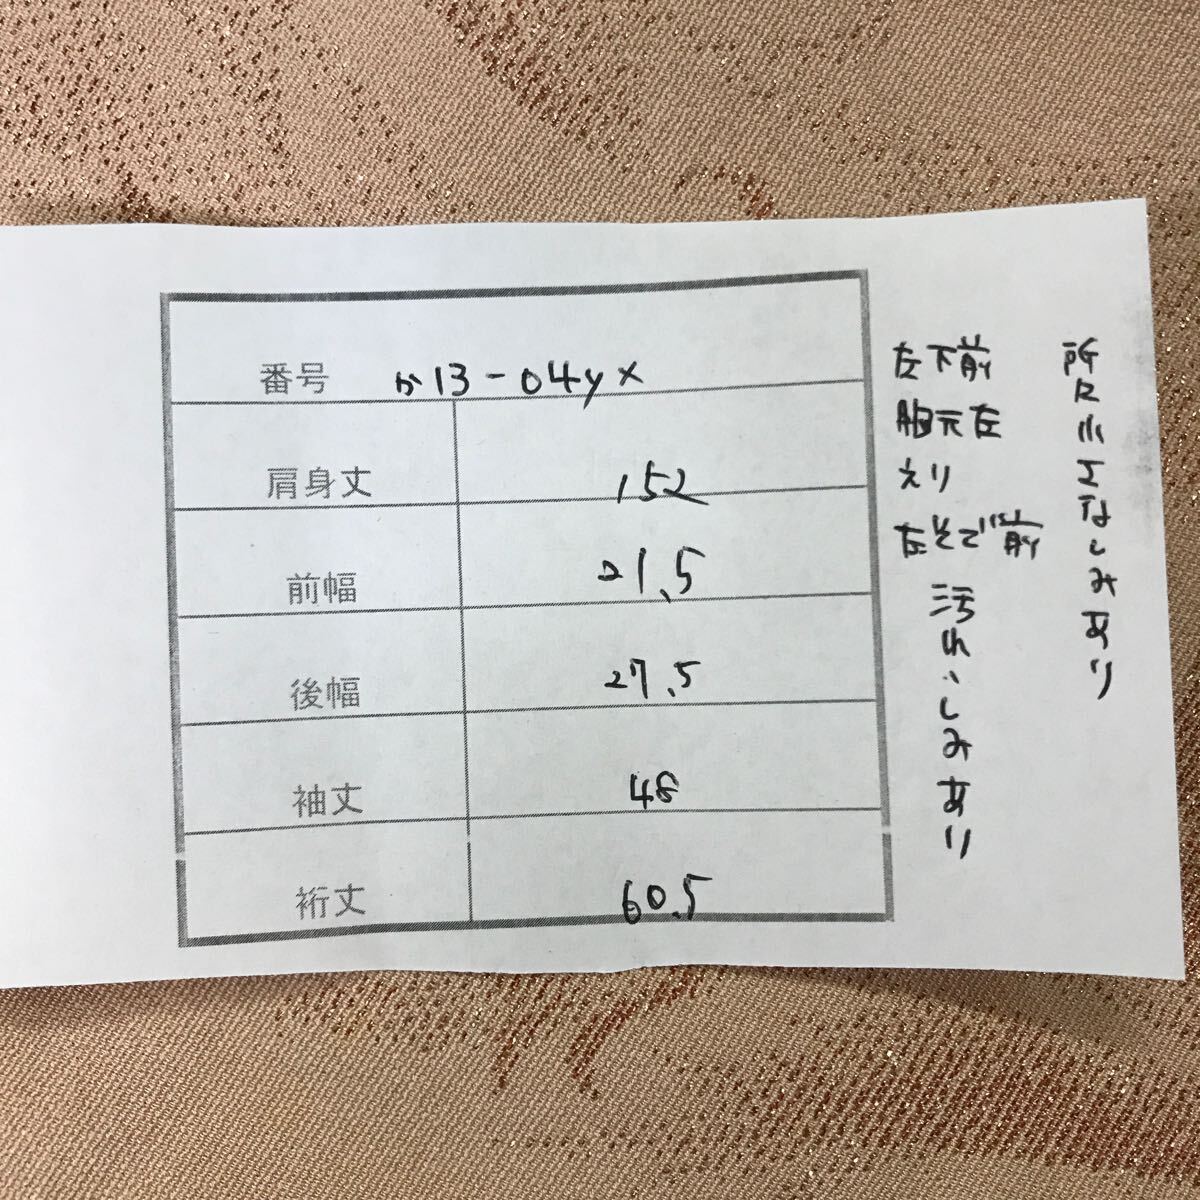 番号 か13-04yx
肩身丈 152
前幅 21.5
後幅 27.5
袖丈 48
裄丈 60.5
左下前
胸元左
えり
左そで前
汚れ、しみあり
所々小さなしみあり